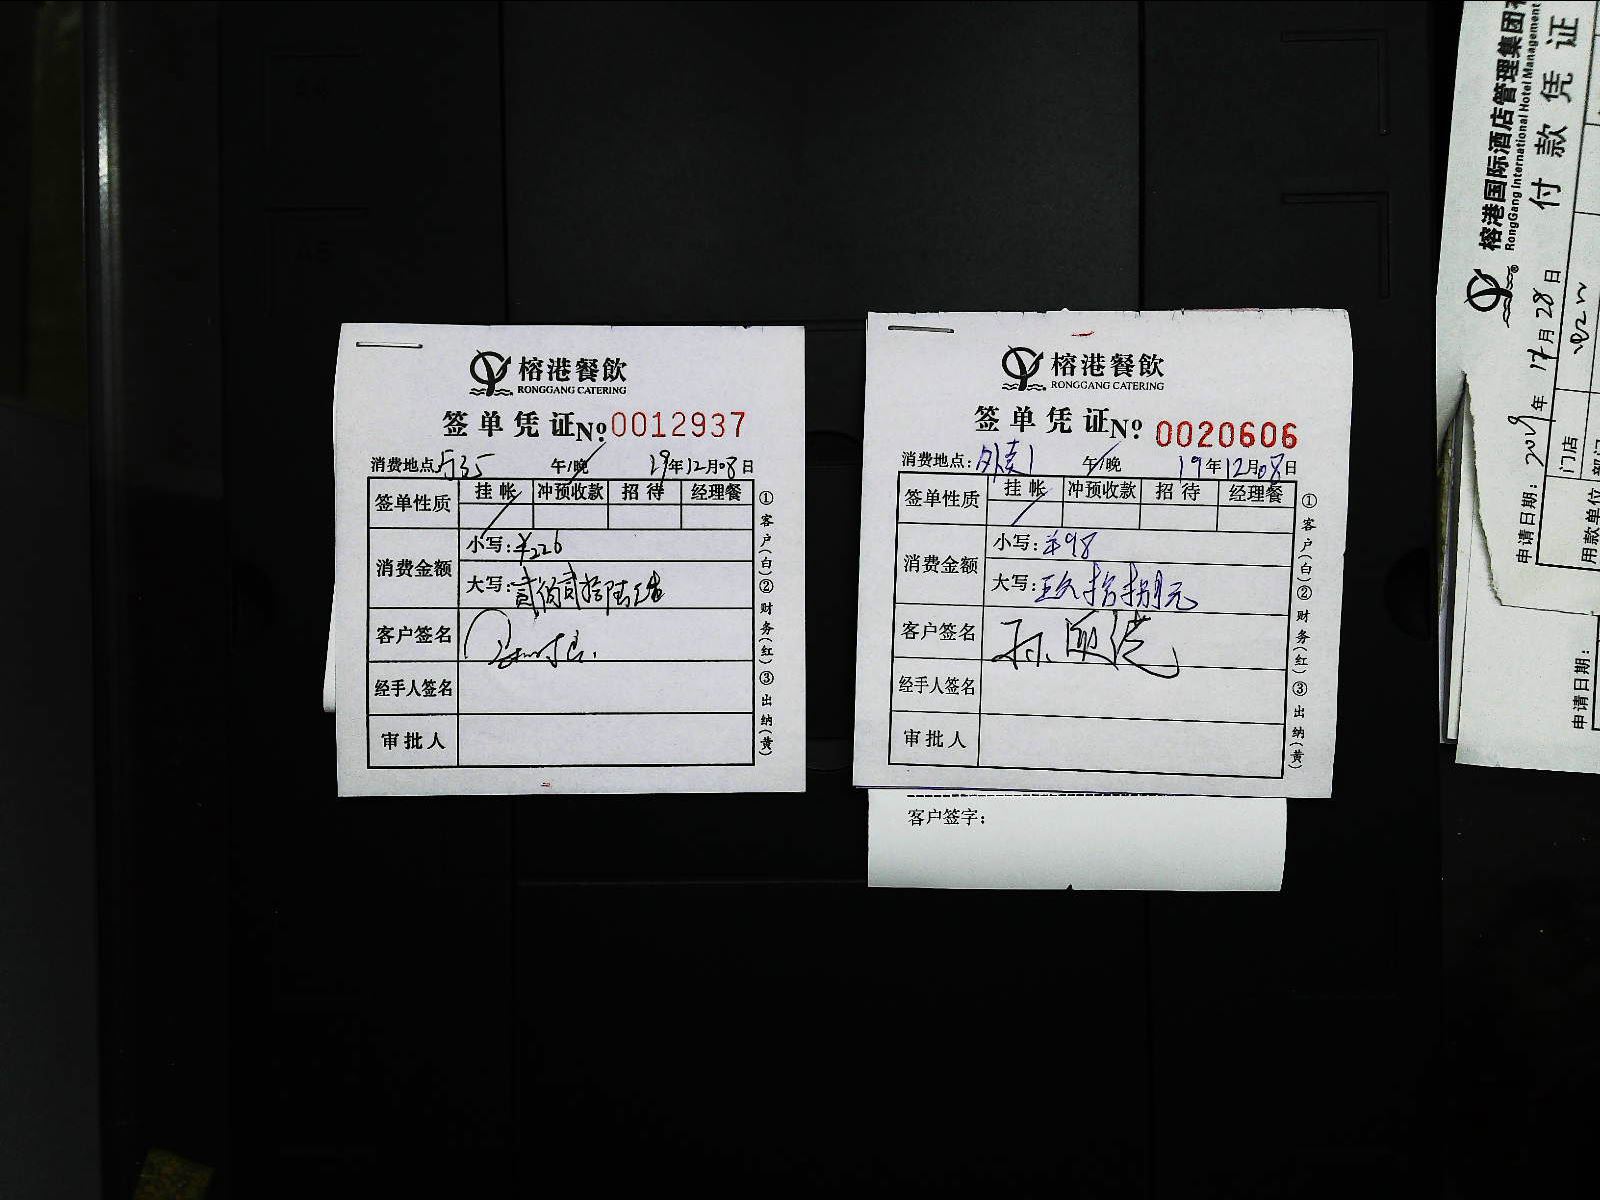 榕港餐飲
RONGGANG CATERING
签单凭证№0012937
消费地点 午/晚 19年12月08日
签单性质 挂帐 冲预收款 招待 经理餐
消费金额 小写:¥226
大写:贰佰贰拾陆元整
客户签名
经手人签名
审批人
①客户(白)②财务(红)③出纳(黄)
榕港餐飲
RONGGANG CATERING
签单凭证№ 0020606
消费地点:外卖1 午/晚 19年12月08日
签单性质 挂帐 冲预收款 招待 经理餐
消费金额 小写:¥98
大写:玖拾捌元
客户签名 孙
经手人签名
审批人
①客户(白)②财务(红)③出纳(黄)
客户签字:
榕港国际酒店管理集团
RongGang International Hotel Management
付款凭证
申请日期:2019年12月28日
门店
用款单位
申请日期: